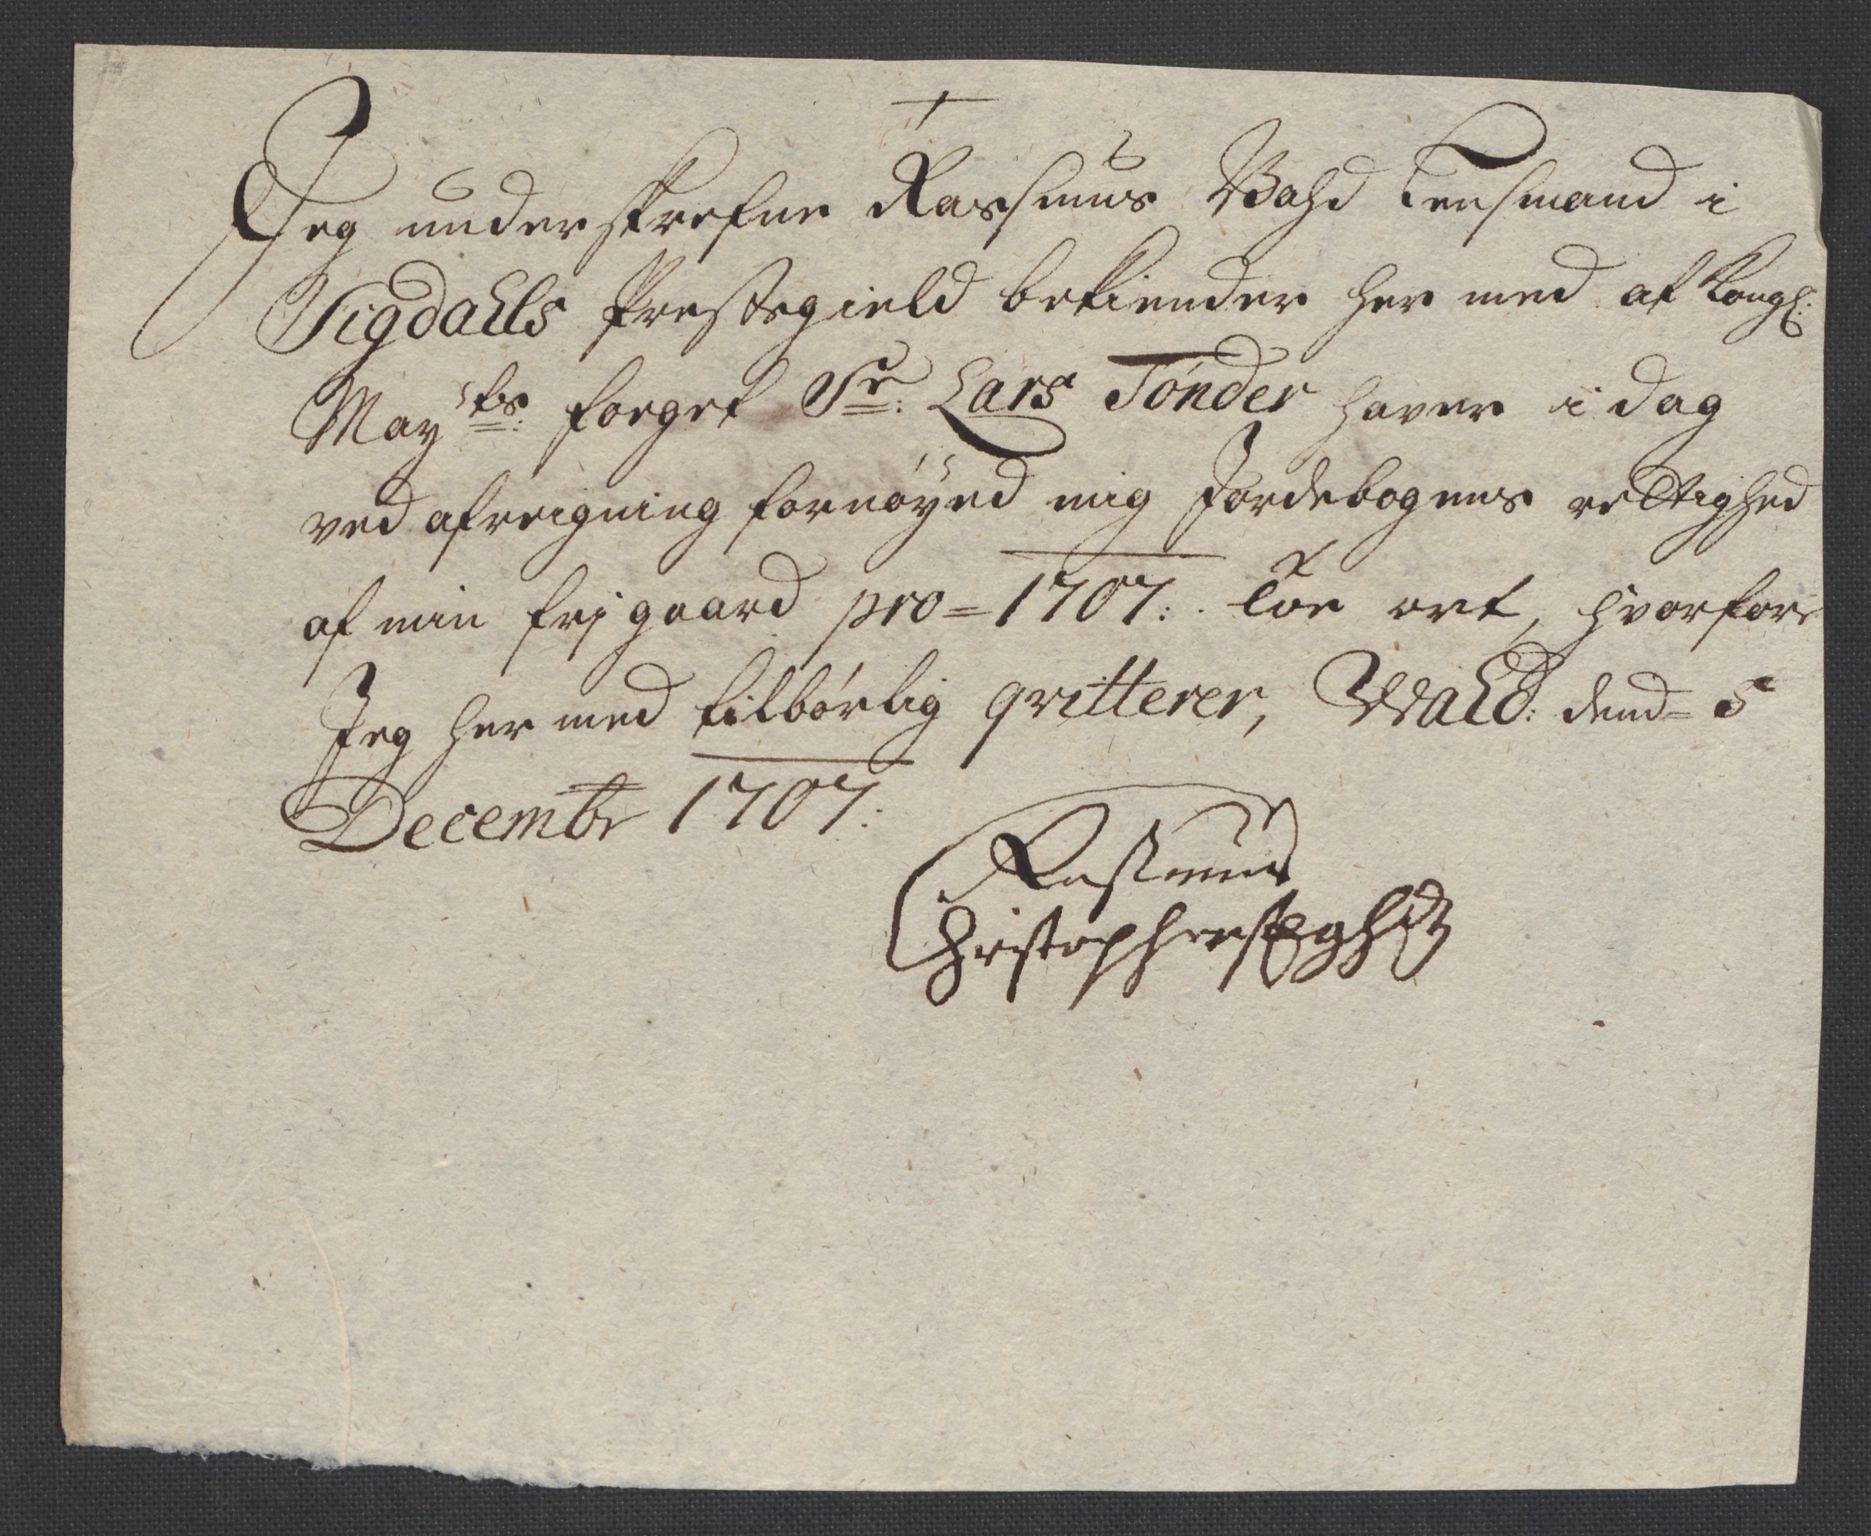 Jeg underskrefne Rassmus Vahd Lensmand i
Sigdahls Prestegield bekiender her med at Kongl:
Mayts: foeget Sr: Lars Tønder haver i dag
ved afreigning fornøyed mig Jordebogens rettighed
af min frj gaard pro = 1707: toe ort, hvorfore
Jeg her med tilbørlig qvitterer, Wald: dend = 5
Decembr 1707:
Rasmus
Christophersen